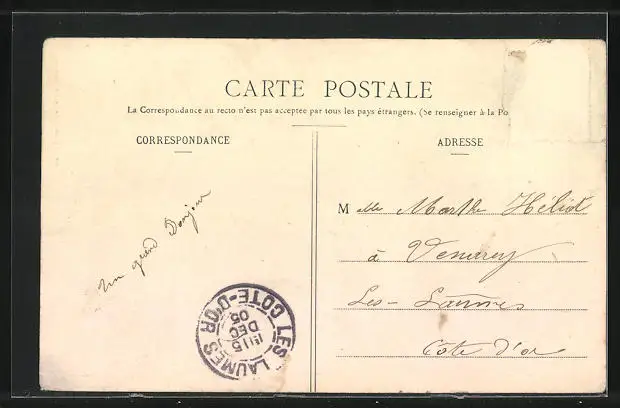 CARTE POSTALE
La Correspondance au recto n'est pas acceptée par tous les pays étrangers. (Se renseigner à la Po
CORRESPONDANCE
ADRESSE
Un grand Bonjour
Melle Marthe Héliot
à Venarey
Les-Laumes
Côte d'or
LES LAUMES COTE-D'OR
15
DEC
05